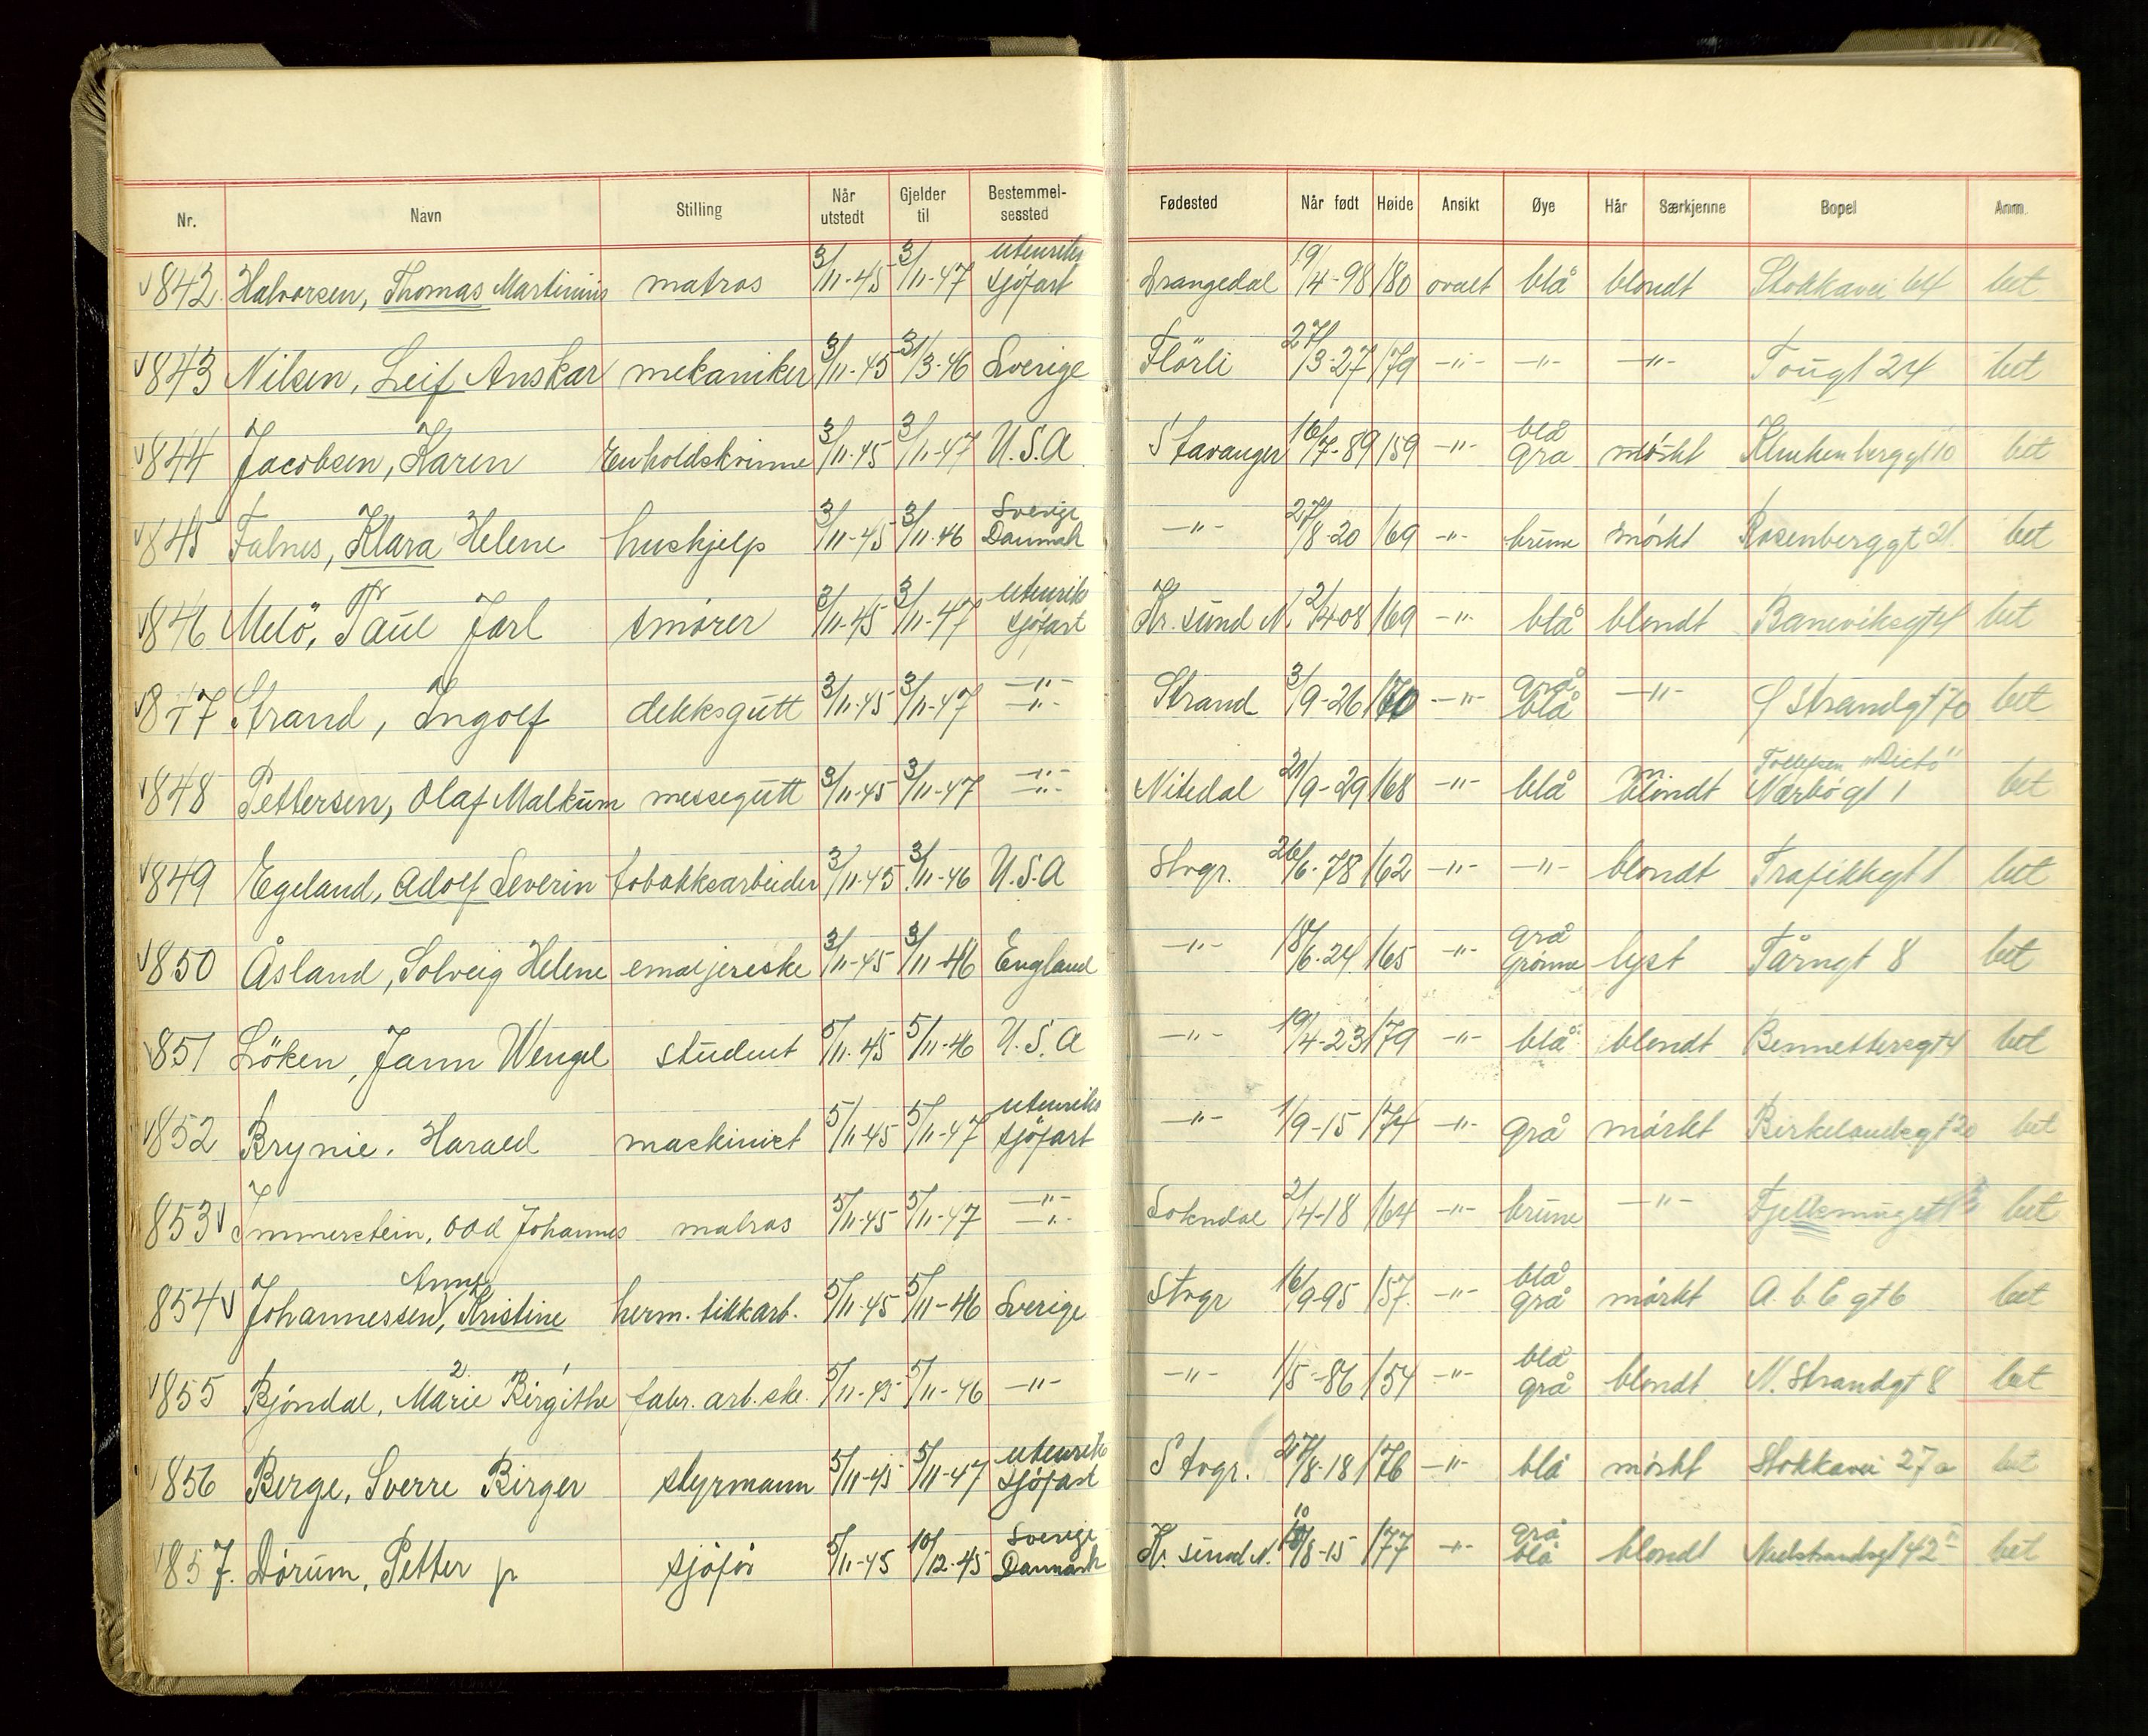 Nr. Navn Stilling Når utstedt Gjelder til Bestemmelsessted Fødested Når født Høide Ansikt Øye Hår Særkjenne Bopel Anm.
1842. Halvorsen, Thomas Martinius matros 3/11-45 3/11-47 utenriks sjøfart Drangedal 19/4-98 180 ovalt blå blondt Stokkavei 64 bet
1843 Nilsen, Leif Anskar mekaniker 3/11-45 31/3-46 Sverige Flörli 27/3-27 179 -"- -"- -"- Tougt 24 bet
1844 Jacobsen, Karen Enholdskvinne 3/11-45 3/11-47 U.S.A Stavanger 16/7-89 159 -"- blå grå mørkt Klinkenberggt 10 bet
1845 Falnes, Klara Helene hushjelp 3/11-45 3/11-46 Sverige Danmark -"- 27/8-20 169 -"- brune mørkt Rosenberggt 21 bet
1846 Melö, Paul Jarl smører 3/11-45 3/11-47 utenriks sjøfart Kr.sund N. 2/4-08 169 -"- blå blondt Baneviksgt 4 bet
1847 Strand, Ingolf dekksgutt 3/11-45 3/11-47 -"- -"- Strand 3/9-26 170 -"- grå blå -"- Strandgt 70 bet
1848 Pettersen, Olaf Malkum messegutt 3/11-45 3/11-47 -"- -"- Nitedal 21/9-29 168 -"- blå m. blondt Nærbøgt 1 bet
1849 Egeland, Adolf Severin tobakksarbeider 3/11-45 3/11-46 U.S.A Stvgr. 26/6-78 162 -"- -"- blondt Trafikkgt 1 bet
1850 Åsland, Solveig Helene emaljereske 3/11-45 3/11-46 England -"- 18/6-24 165 -"- grå grønne lyst Tårngt 8 bet
1851 Löken, Jann Wengel student 5/11-45 5/11-46 U.S.A -"- 19/4-23 179 -"- blå blondt Bennettersgt 4 bet
1852 Brynie, Harald maskinist 5/11-45 5/11-47 utenriks sjøfart -"- 1/9-15 174 -"- grå mørkt Birkelandsgt 20 bet
1853 Immerstein, Odd Johannes matros 5/11-45 5/11-47 -"- -"- Sokndal 2/4-18 164 -"- brune -"- bet
1854 Johannessen, Anna Kristine herm. likkarb. 5/11-45 5/11-46 Sverige Stvgr 16/9-95 157 -"- blå grå mørkt A.b.C gt 6 bet
1855 Bjöndal, Marie 2 Birgithe 1 fabr.arb.ske. 5/11-45 5/11-46 -"- -"- 1/5-86 154 -"- blå grå blondt N. Strandgt 8 bet
1856 Berge, Sverre Birger styrmann 5/11-45 5/11-47 utenriks sjøfart Stvgr. 27/8-18 176 -"- blå mørkt Stokkavei 27a bet
1857. Dórum, Petter p sjøfør 5/11-45 10/12-45 Sverige Danmark Kr. sund N. 10/8-15 177 -"- grå blå blondt Nedstrandsgt 42 bet